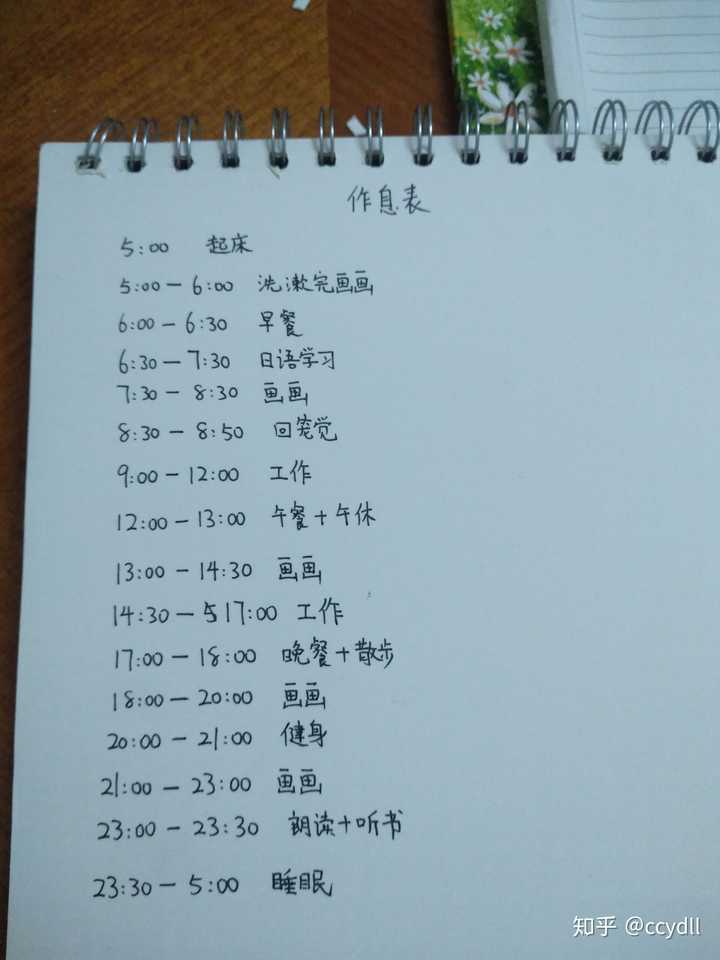 作息表
5:00 起床
5:00 — 6:00 洗漱完画画
6:00 — 6:30 早餐
6:30 — 7:30 日语学习
7:30 — 8:30 画画
8:30 — 8:50 回笼觉
9:00 — 12:00 工作
12:00 — 13:00 午餐+午休
13:00 — 14:30 画画
14:30 — 5 17:00 工作
17:00 — 18:00 晚餐+散步
18:00 — 20:00 画画
20:00 — 21:00 健身
21:00 — 23:00 画画
23:00 — 23:30 朗读+听书
23:30 — 5:00 睡眠
知乎 @ccydll